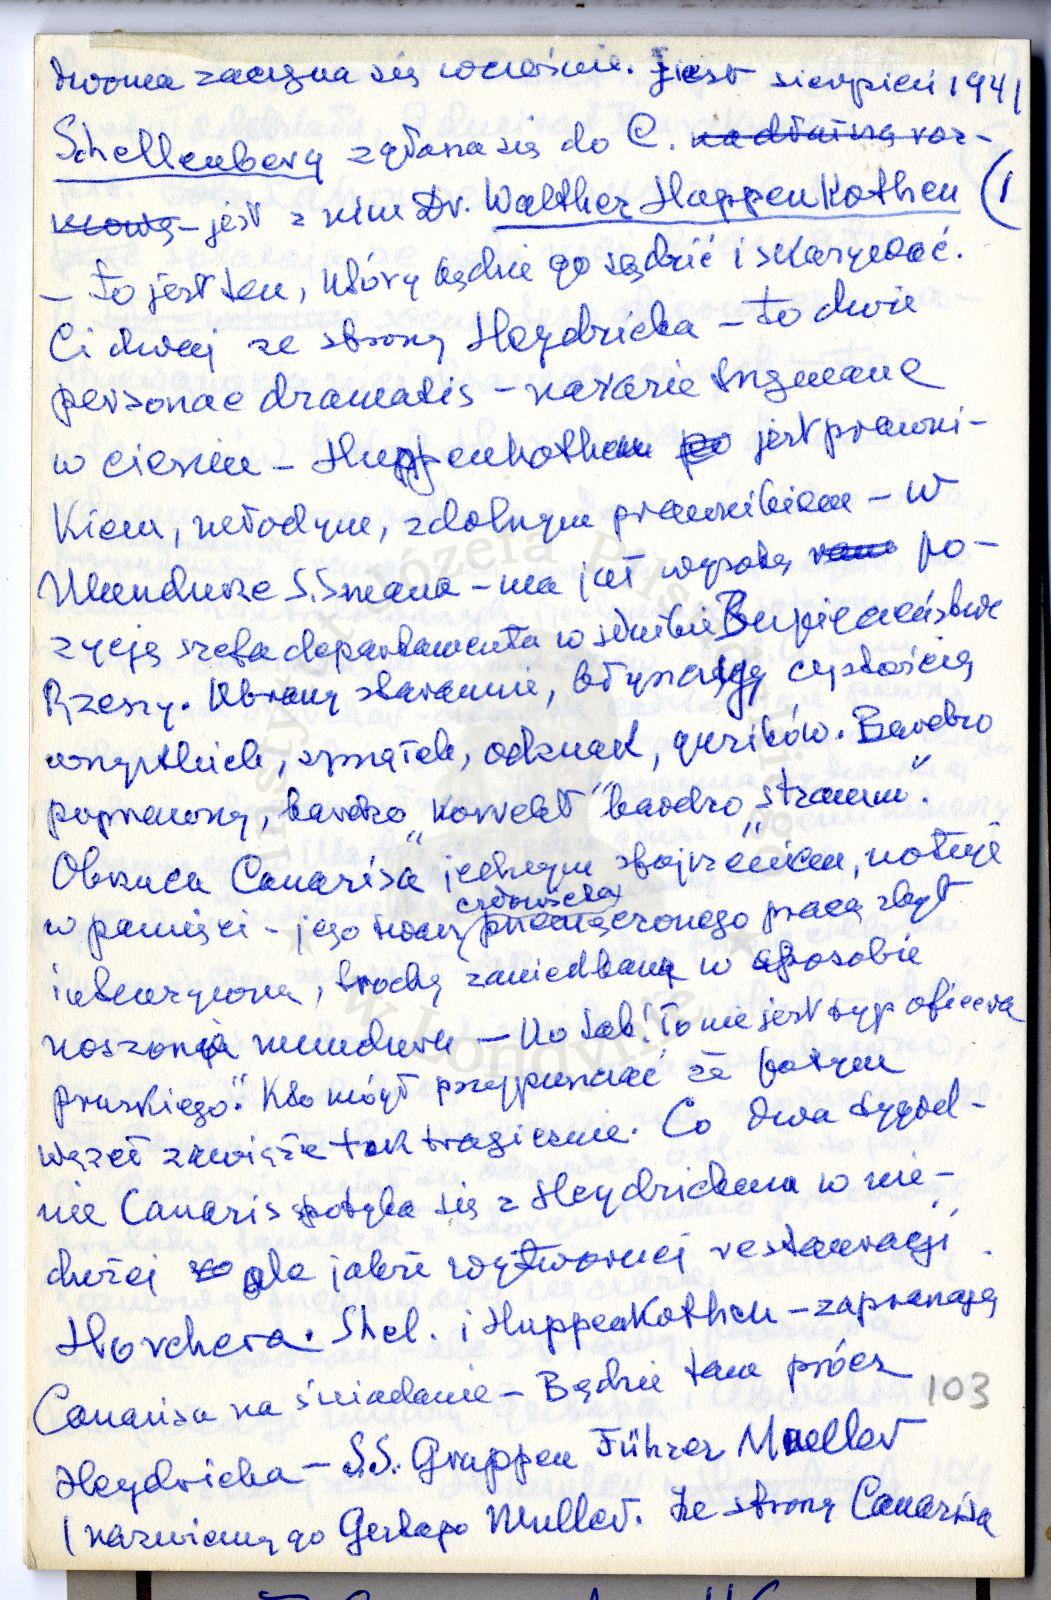 zaczyna się wcześnie. Jest sierpień 1941
Schellenberg zgłasza się do C. na dłuższą roz-
mowę - jest z nim Dr. Walther Huppenkothen (1
- to jest ten, który będzie go sądzić i skazywać.
Ci dwaj ze strony Heydricha - to dwie
personae dramatis - na razie trzymane
w cieniu - Huppenkothen jest prawni-
kiem, młodym, zdolnym prawnikiem - W
Mundurze S.Smana - ma już wysoką po-
zycję szefa departamentu w służbie Bezpieczeństwa
Rzeszy. Ubrany starannie, błyszczący czystością
wszystkich, sprzączek, odznak, guzików. Bardzo
poprawny, bardzo "korrekt" bardzo "stramm".
Obrzuca Canarisa jednym spojrzeniem, notuje
w pamięci - jego twarz człowieka przemęczonego pracą zbyt
intensywną, trochę zaniedbaną w sposobie
noszenia munduru - No tak! To nie jest typ oficera
pruskiego". Kto mógł przypuszczać że potem
węzeł zawiąże tak tragicznie. Co dwa tygod-
nie Canaris spotyka się z Heydrichem w nie-
dużej ale jakże wytwornej restauracji
Horchera. Shel. i Huppenkothen - zapraszają
Canarisa na śniadanie - Będzie tam prócz
Heydricha - S.S. Gruppen Führer Mueller
( nazwiemy go Gestapo Muller. Ze strony Canarisa
103
Instytut Józefa Piłsudskiego
w Londynie